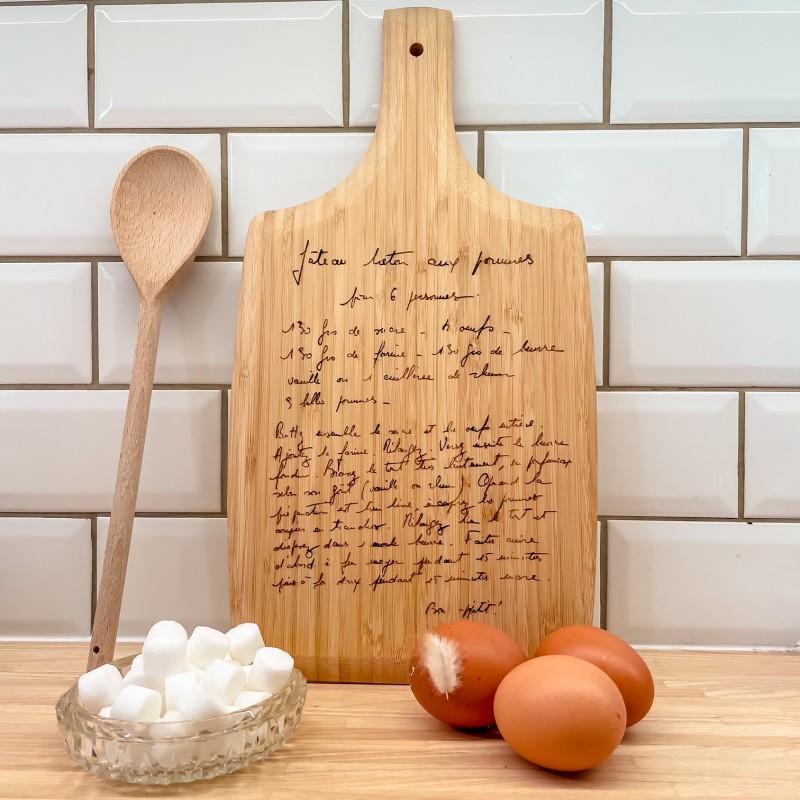 Gateau breton aux pommes
pour 6 personnes.
130 grs de sucre - 4 oeufs -
130 grs de farine - 130 grs de beurre
vanille ou 1 cuillerée de rhum
3 belles pommes -
Battez ensemble le sucre et les oeufs entiers.
Ajoutez la farine. Mélangez. Versez ensuite le beurre
fondu. Brassez le tout très lentement, en parfumant
selon son goût (vanille ou rhum). Quand la
préparation est bien lisse, incorporez les pommes
coupées en tranches. Mélangez bien le tout et
disposez dans 1 moule beurré. Faites cuire
d'abord à feu moyen pendant 15 minutes
puis à feu doux pendant 15 minutes encore.
Bon appétit !